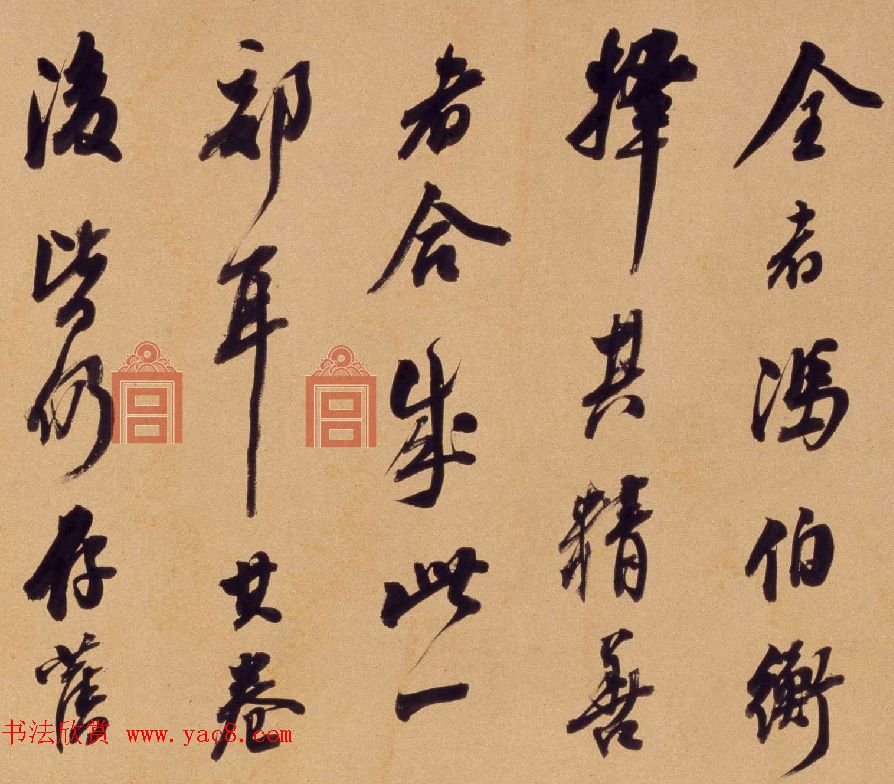 全者馮伯衡
擇其精善
者合成此一
部耳其卷
後皆仍存舊
书法欣赏 www.yac8.com